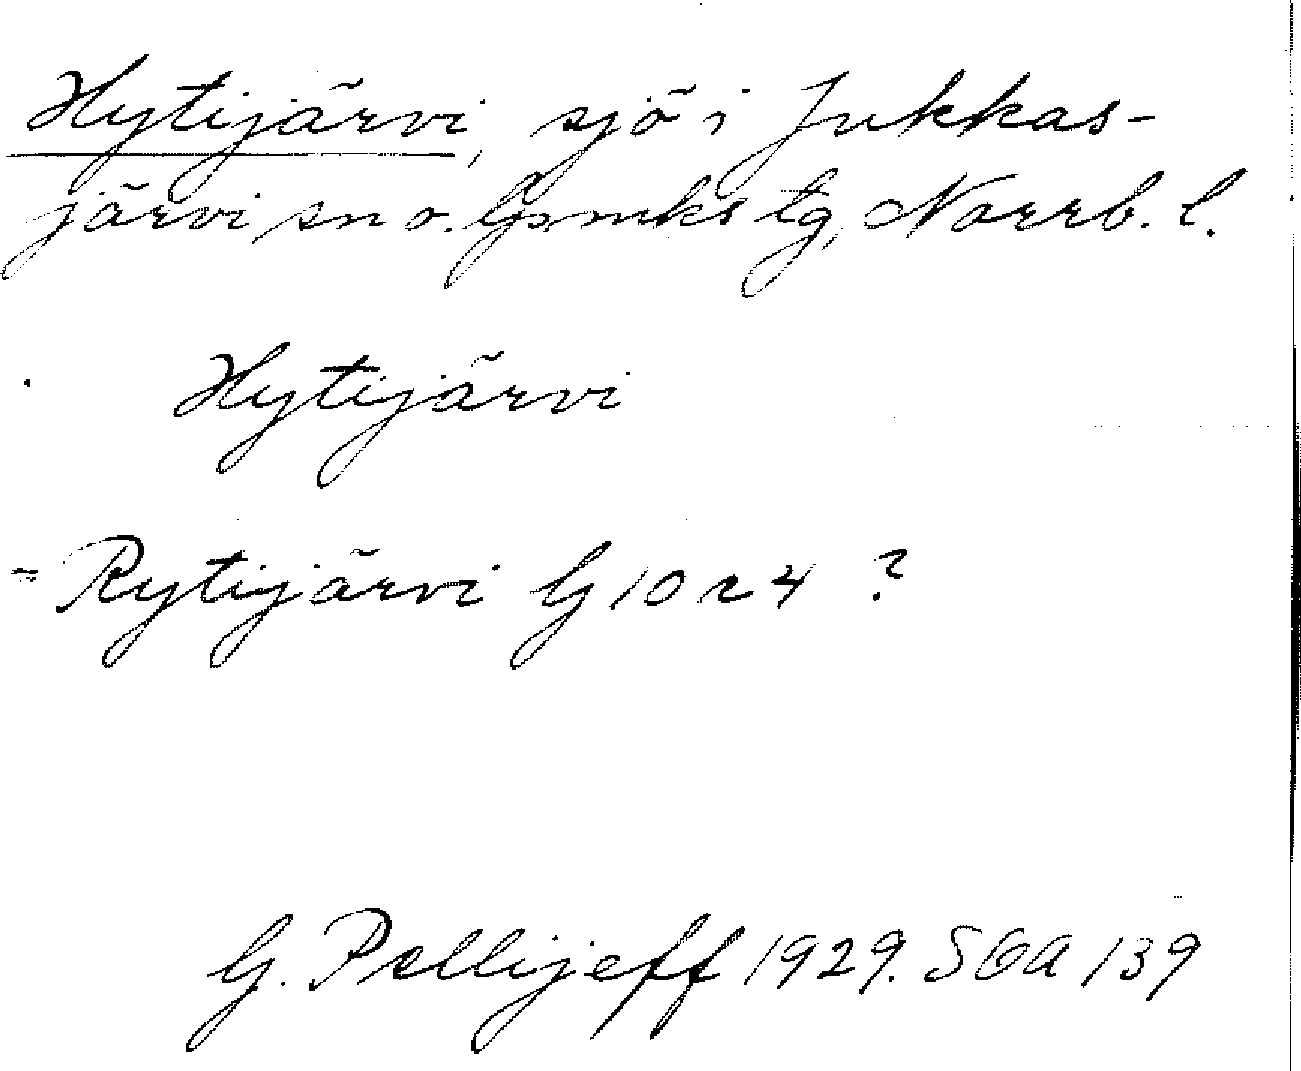 Hytijärvi, sjö i Jukkas-
järvi sn o. lpmks tg, Norrb. l.
Hytijärvi
= Rytijärvi G 10 r 4 ?
G. Pellijeff 1929. SOA 139